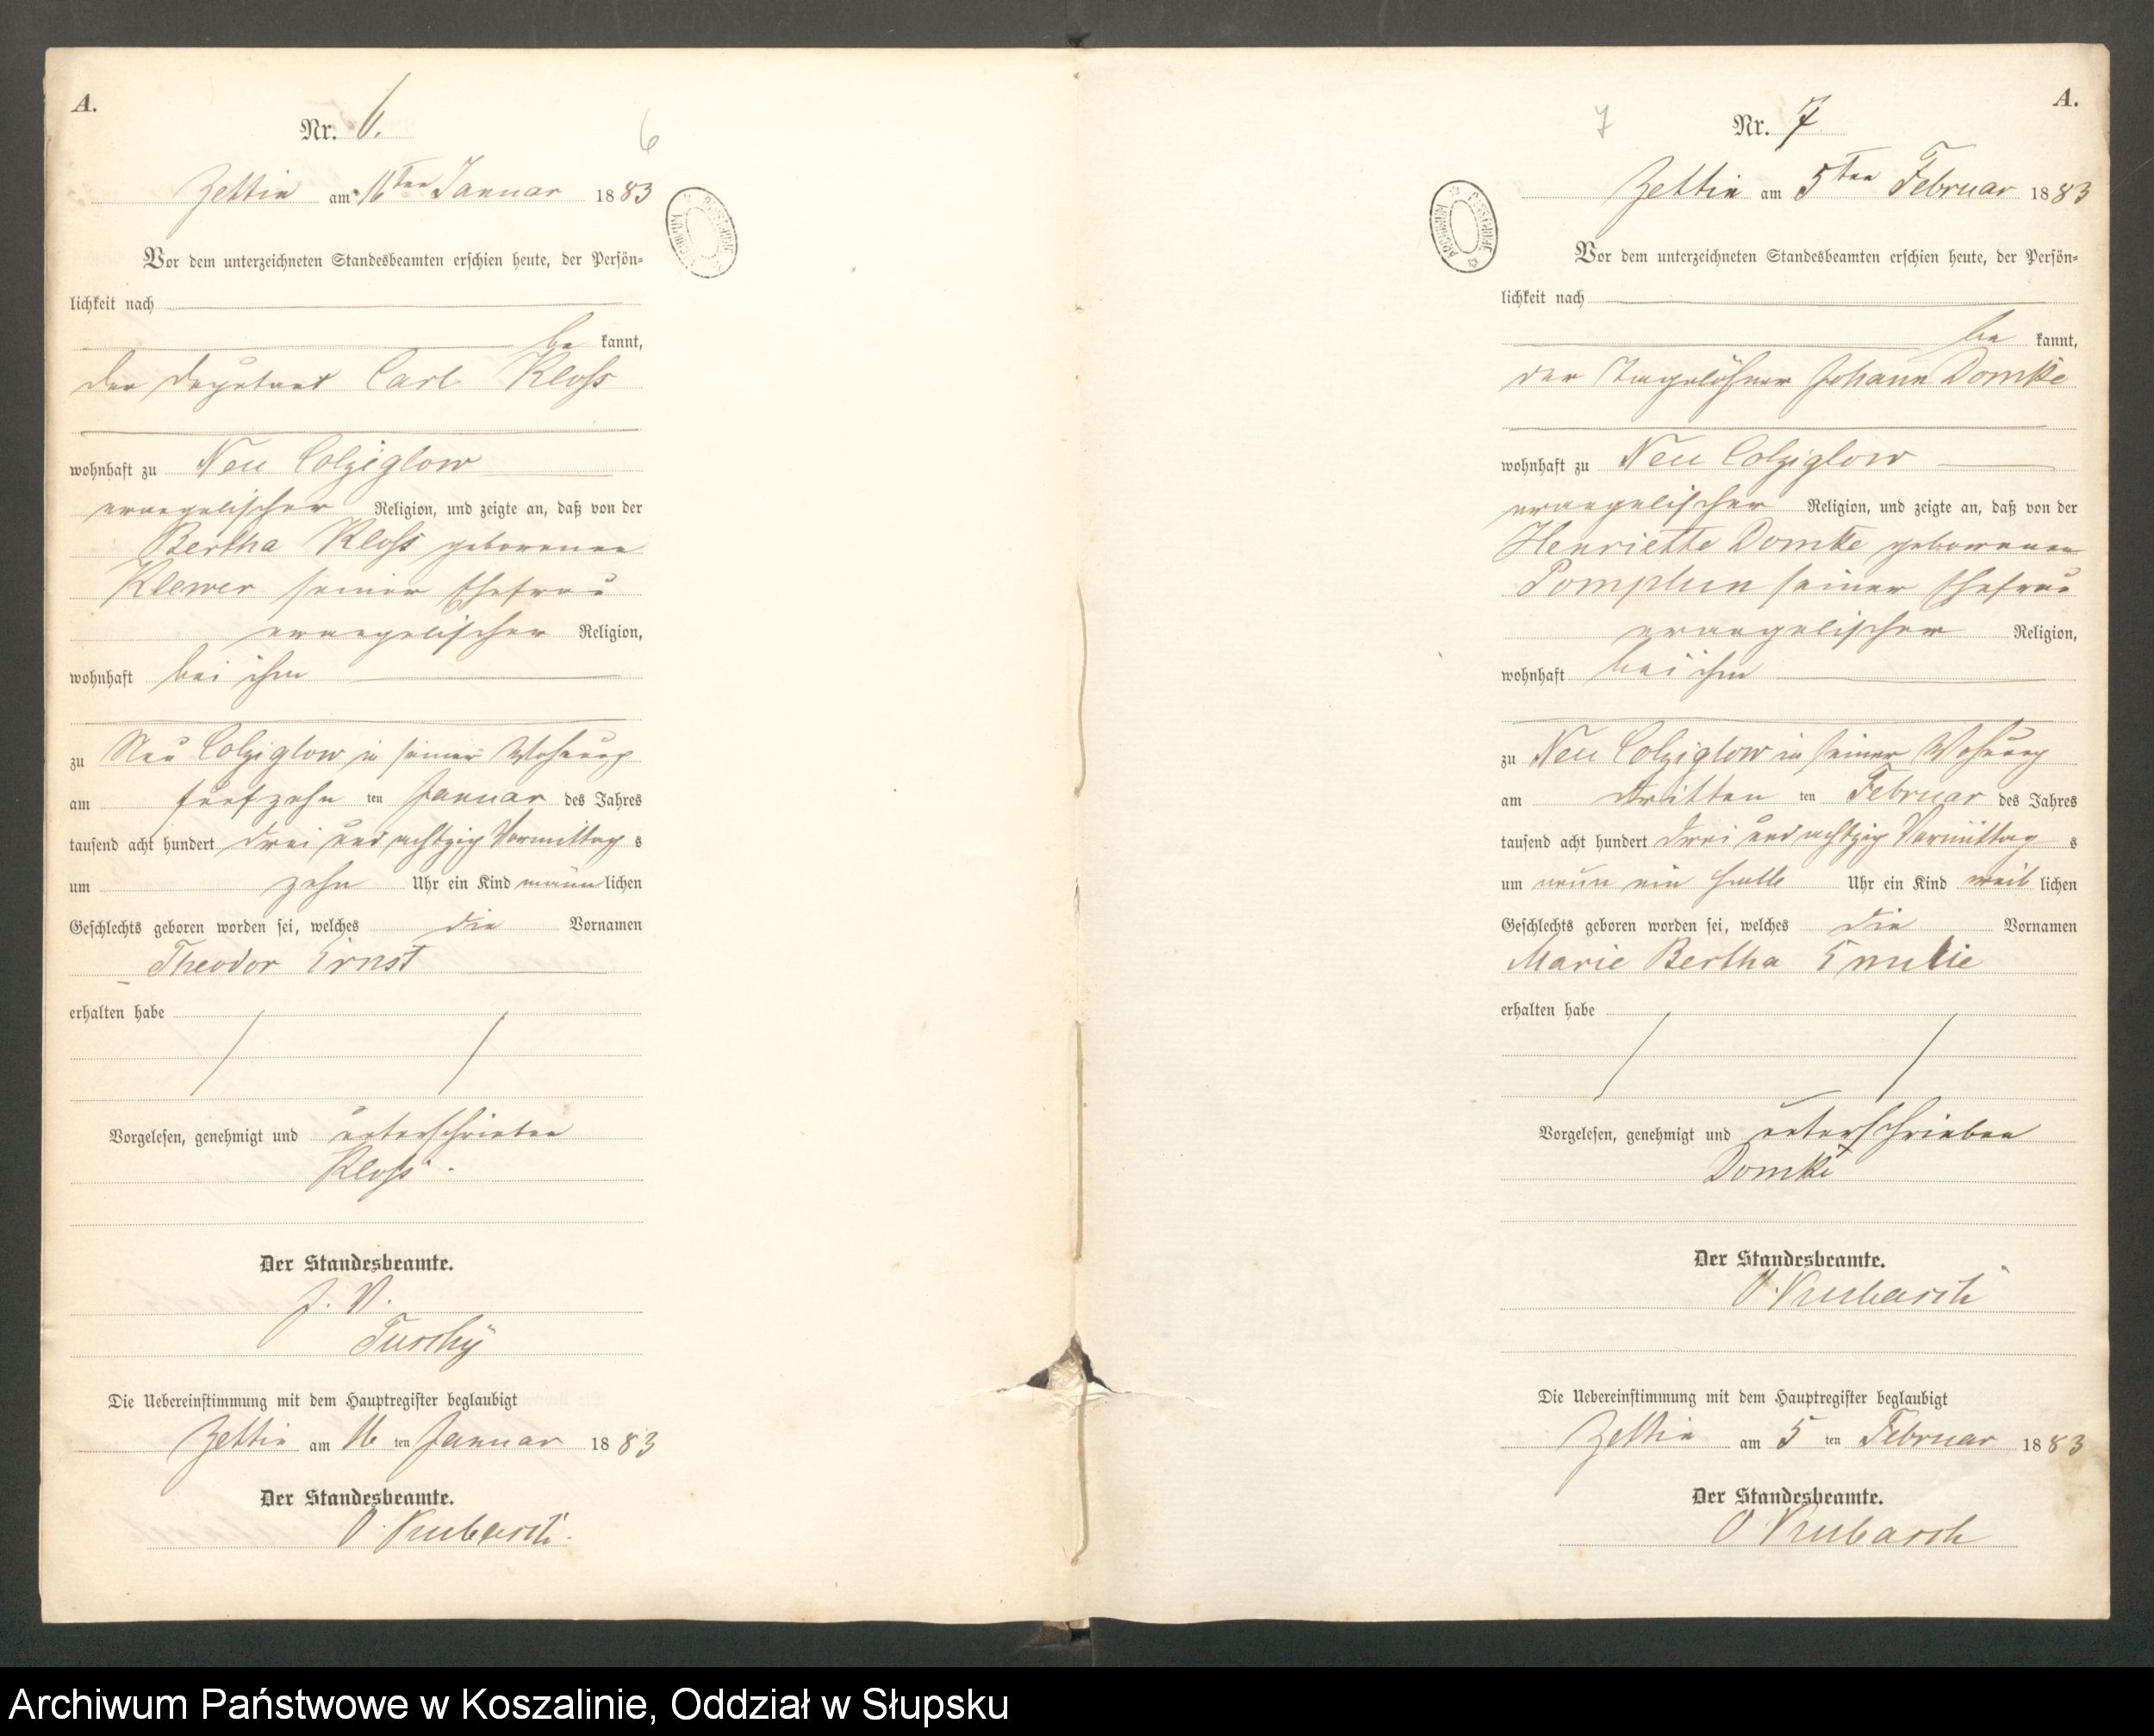 A.
Nr. 6.
6
Zettin am 16ten Januar 1883
Vor dem unterzeichneten Standesbeamten erschien heute, der Persön-
lichkeit nach
be kannt,
der Deputant Carl Kloß
wohnhaft zu Neu Colziglow
evangelischer Religion, und zeigte an, daß von der
Bertha Kloß geborenen
Klewer seiner Ehefrau
evangelischer Religion,
wohnhaft bei ihm
zu Neu Colziglow in seiner Wohnung
am fünfzehn ten Januar des Jahres
tausend acht hundert drei und achtzig Vormittag s
um zehn Uhr ein Kind männ lichen
Geschlechts geboren worden sei, welches die Vornamen
Theodor Ernst
erhalten habe
Vorgelesen, genehmigt und unterschrieben
Kloß.
Der Standesbeamte.
J. V.
Tuschy
Die Uebereinstimmung mit dem Hauptregister beglaubigt
Zettin am 16 ten Januar 1883
Der Standesbeamte.
A.
7
Nr. 7
Zettin am 5ten Februar 1883
Vor dem unterzeichneten Standesbeamten erschien heute, der Persön-
lichkeit nach
be kannt,
der Tagelöhner Johann Domke
wohnhaft zu Neu Colziglow
evangelischer Religion, und zeigte an, daß von der
Henriette Domke geborenen
Pomplun seiner Ehefrau
evangelischer Religion,
wohnhaft bei ihm
zu Neu Colziglow in seiner Wohnung
am dritten ten Februar des Jahres
tausend acht hundert drei und achtzig Vormittag s
um neun ein halb Uhr ein Kind weib lichen
Geschlechts geboren worden sei, welches die Vornamen
Marie Bertha Emilie
erhalten habe
Vorgelesen, genehmigt und unterschrieben
Domke
Der Standesbeamte.
Die Uebereinstimmung mit dem Hauptregister beglaubigt
Zettin am 5 ten Februar 1883
Der Standesbeamte.
Archiwum Państwowe w Koszalinie, Oddział w Słupsku